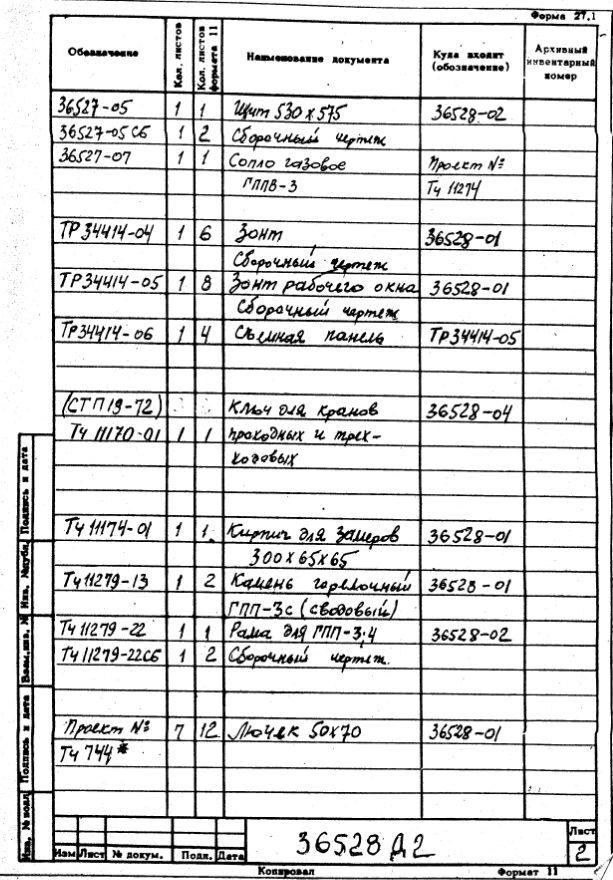 Форма 27.1
Обозначение Кол. листов Кол. листов формата 11 Наименование документа Куда входит (обозначение) Архивный инвентарный номер
36527-05 1 1 Щит 530х575 36528-02
36527-05СБ 1 2 Сборочный чертеж
36527-07 1 1 Сопло газовое Проект №
ГППВ-3 Тч 11274
ТР34414-04 1 6 Зонт 36528-01
Сборочный чертеж
ТР34414-05 1 8 Зонт рабочего окна 36528-01
Сборочный чертеж
ТР34414-06 1 4 Съемная панель ТР34414-05
(СТП19-72) Ключ для кранов 36528-04
Тч 11170-01 1 1 проходных и трех-
ходовых
Тч 11174-01 1 1 Кирпич для замеров 36528-01
300х65х65
Тч 11279-13 1 2 Камень горелочный 36528-01
ГПП-3с (сводовый)
Тч 11279-22 1 1 Рама для ГПП-3.4 36528-02
Тч 11279-22СБ 1 2 Сборочный чертеж.
Проект № 7 12 Лючек 50х70 36528-01
Тч 744*
Инв. № подл. Подпись и дата Взам. инв. № Инв. № дубл. Подпись и дата
Изм Лист № докум. Подп. Дата
36528 Д2
Лист
2
Копировал Формат 11